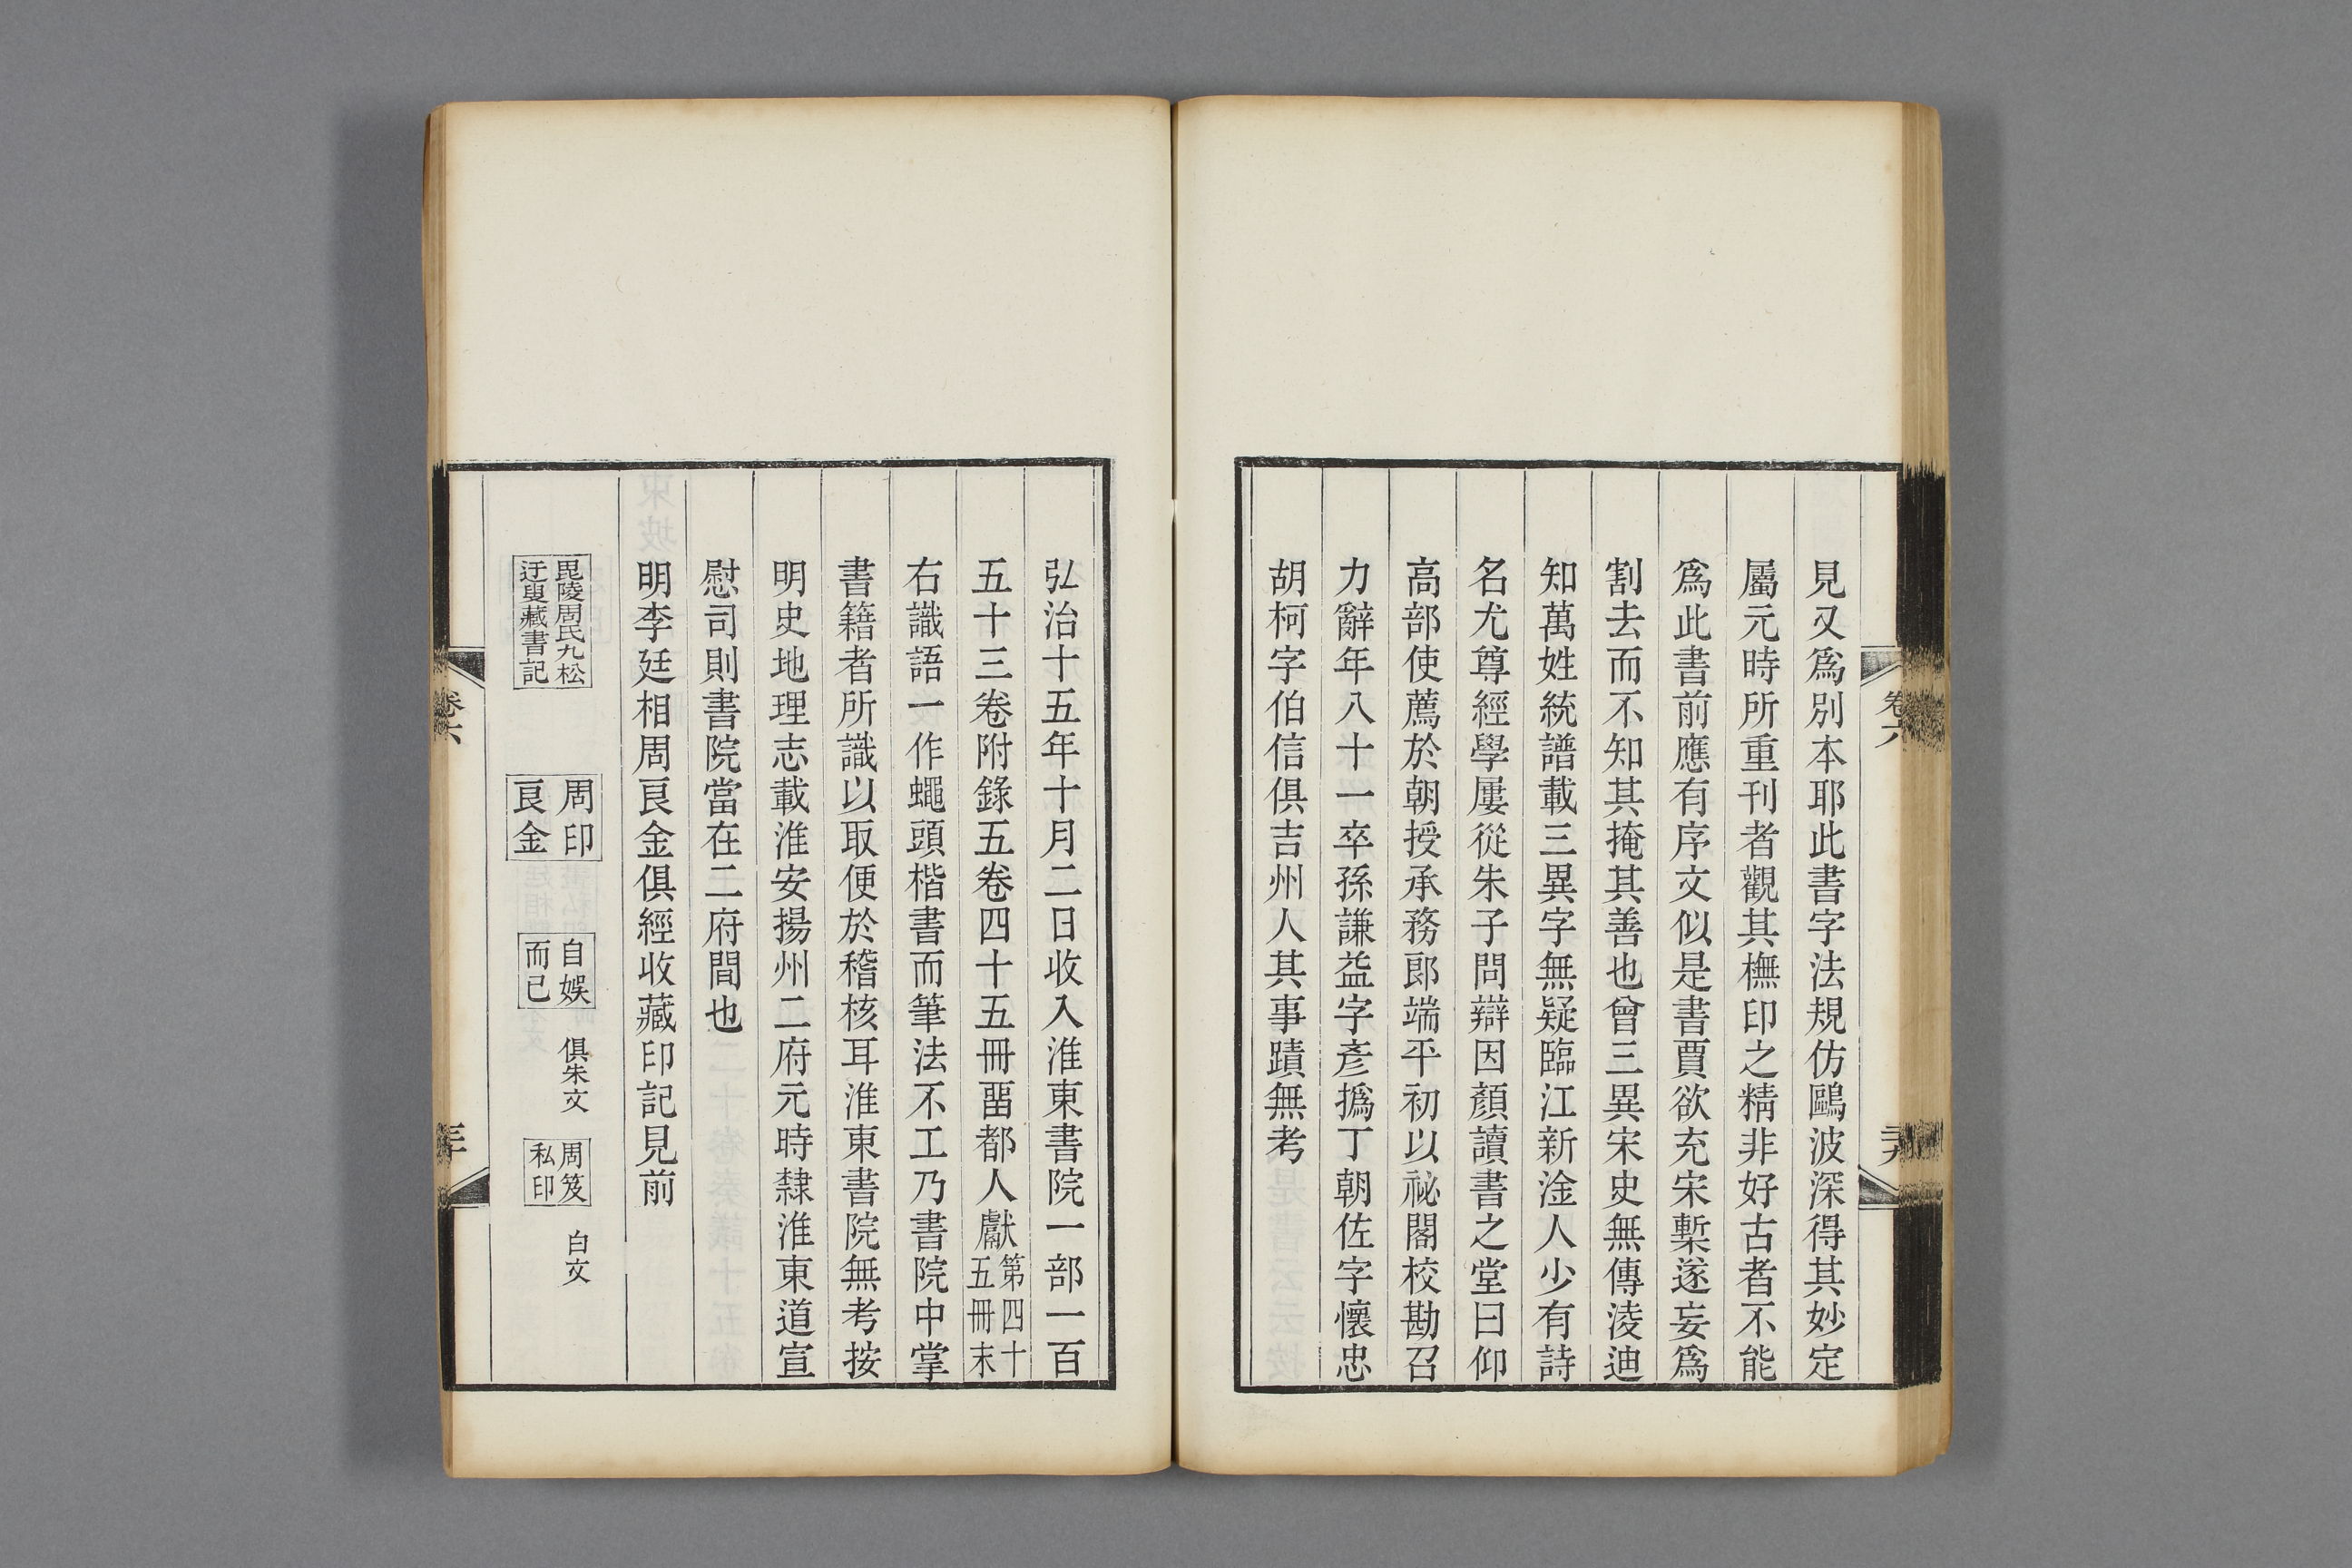 見又爲別本耶此書字法規仿鷗波深得其妙定
屬元時所重刊者觀其橅印之精非好古者不能
爲此書前應有序文似是書賈欲充宋槧遂妄爲
割去而不知其掩其善也曾三異宋史無傳淩迪
知萬姓統譜載三異字無疑臨江新淦人少有詩
名尤尊經學屢從朱子問辯因顏讀書之堂曰仰
高部使薦於朝授承務郎端平初以祕閣校勘召
力辭年八十一卒孫謙益字彥撝丁朝佐字懷忠
胡柯字伯信俱吉州人其事蹟無考
卷六
二十九
弘治十五年十月二日收入淮東書院一部一百
五十三卷附錄五卷四十五冊畱都人獻第四十五冊末
右識語一作蠅頭楷書而筆法不工乃書院中掌
書籍者所識以取便於稽核耳淮東書院無考按
明史地理志載淮安揚州二府元時隸淮東道宣
慰司則書院當在二府間也
明李廷相周艮金俱經收藏印記見前
毘陵周氏九松
迂叟藏書記
周印
艮金
自娛
而已
俱朱文
周笈
私印
白文
卷六
三十